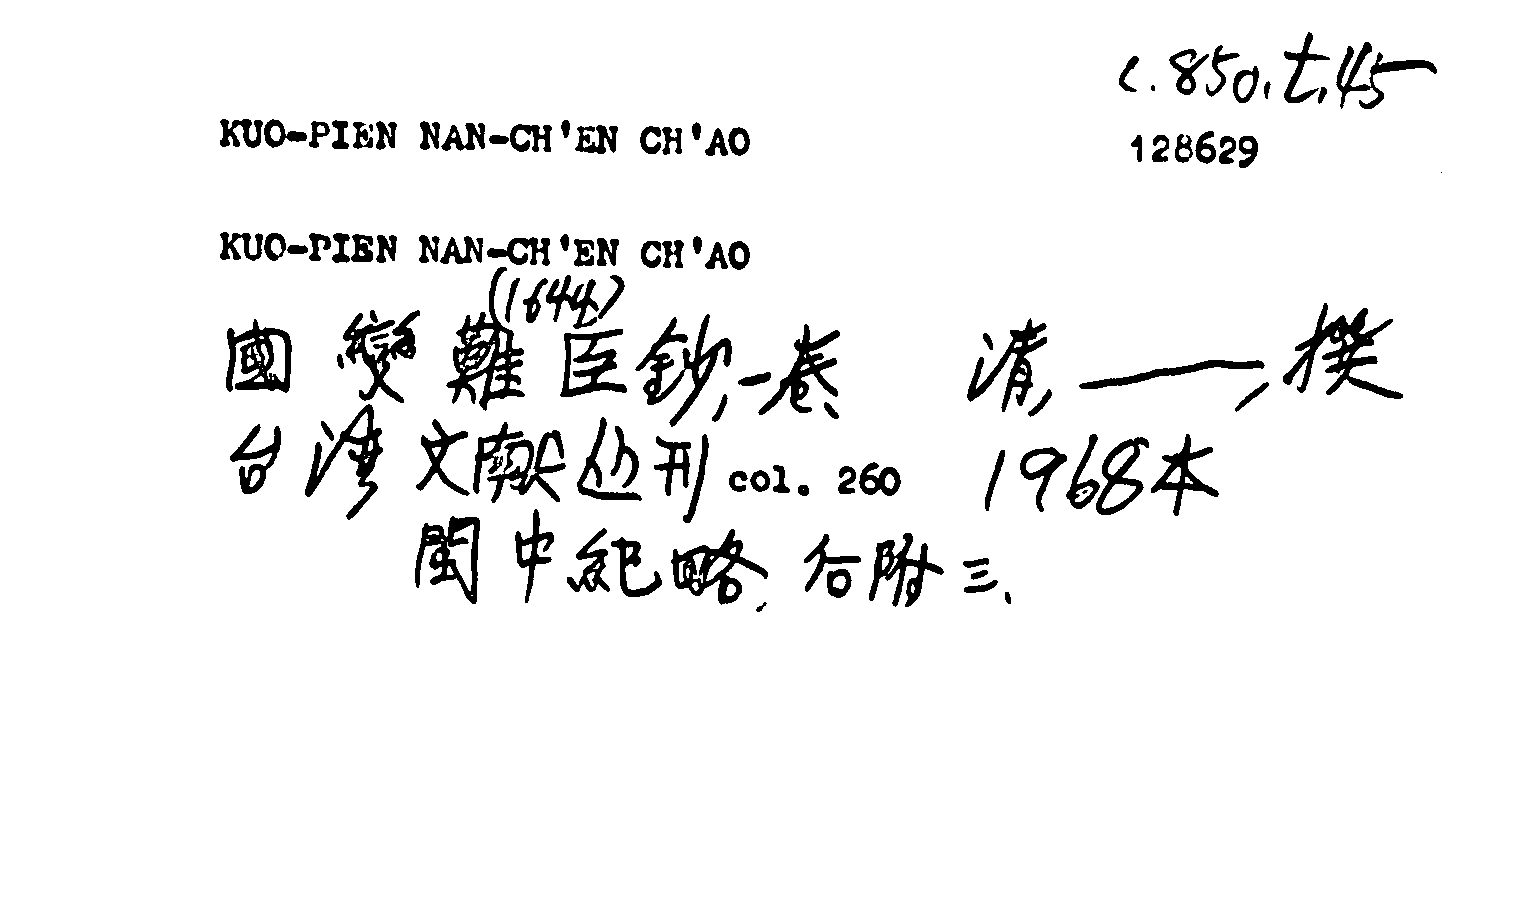 c.850.t.45
KUO-PIEN NAN-CH'EN CH'AO
128629
KUO-PIEN NAN-CH'EN CH'AO
(1644)
國變難臣鈔,一卷 清,——,撰
台湾文献丛刊 col. 260 1968本
閩中紀略 合附三.